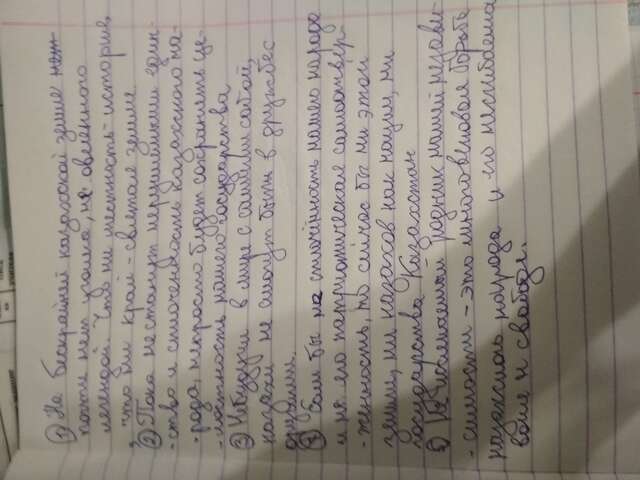 1) На бескрайней казахской земле нет
почти нет уголка, не овеянного
легендой. Что ни местность - история,
что ни край - святая земля
2) Пока не станут нерушимыми един-
-ство и сплоченность казахского на-
-рода, непросто будет сохранять це-
-лостность нашего государства
3) Не будучи в мире с самими собой,
казахи не смогут быть в дружбе с
другими.
4) Если бы не сплочённость нашего народа
и не его патриотическая самоотвер-
-женность, то сейчас бы ни этой
земли, ни казахов как нации, ни
государства Казахстан
5) Неиссякаемый родник нашей независи-
-симости - это многовековая борьба
казахского народа и его несгибаемая
воля к свободе.